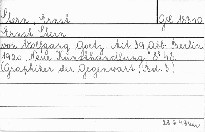 Stern, Ernst
Ernst Stern
von Wolfgang Goetz. Mit 39 Abb. Berlin
1920. Neue Kunsthandlung 8° 47
(Graphiker der Gegenwart (Bd. 5)